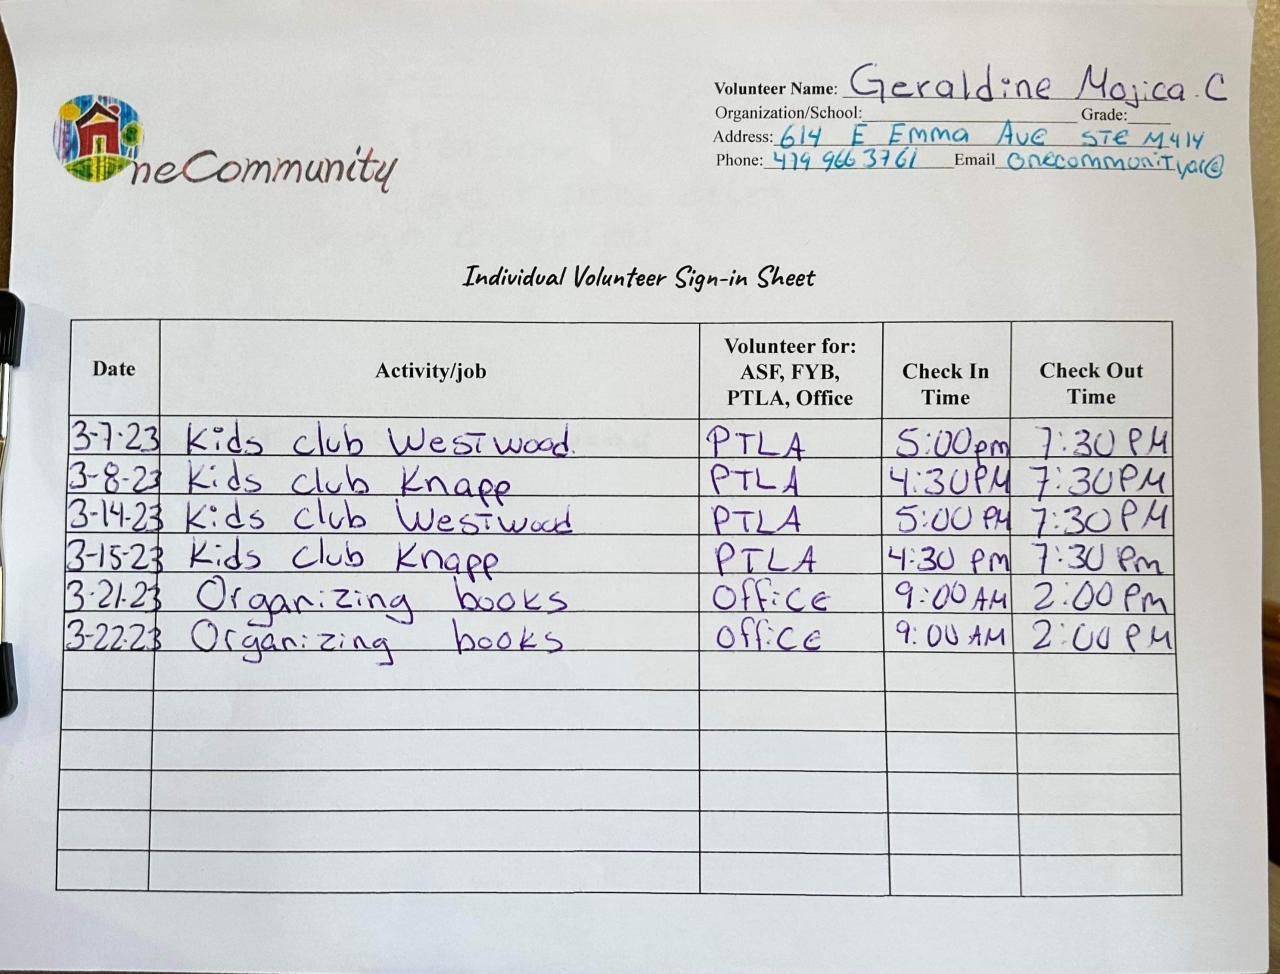 Volunteer Name: Geraldine Mojica.C
Organization/School: Grade:
Address: 614 E Emma Ave STE M414
Phone: 479 966 3761 Email onecommunityar@
neCommunity
Individual Volunteer Sign-in Sheet
Date Activity/job Volunteer for: ASF, FYB, PTLA, Office Check In Time Check Out Time
3-7-23 Kids club Westwood. PTLA 5:00pm 7:30 PM
3-8-23 Kids club Knapp PTLA 4:30PM 7:30PM
3-14-23 Kids club Westwood PTLA 5:00 PM 7:30 PM
3-15-23 Kids club Knapp PTLA 4:30 pm 7:30 Pm
3-21-23 Organizing books Office 9:00 AM 2:00 Pm
3-22-23 Organizing books Office 9:00 AM 2:00 PM